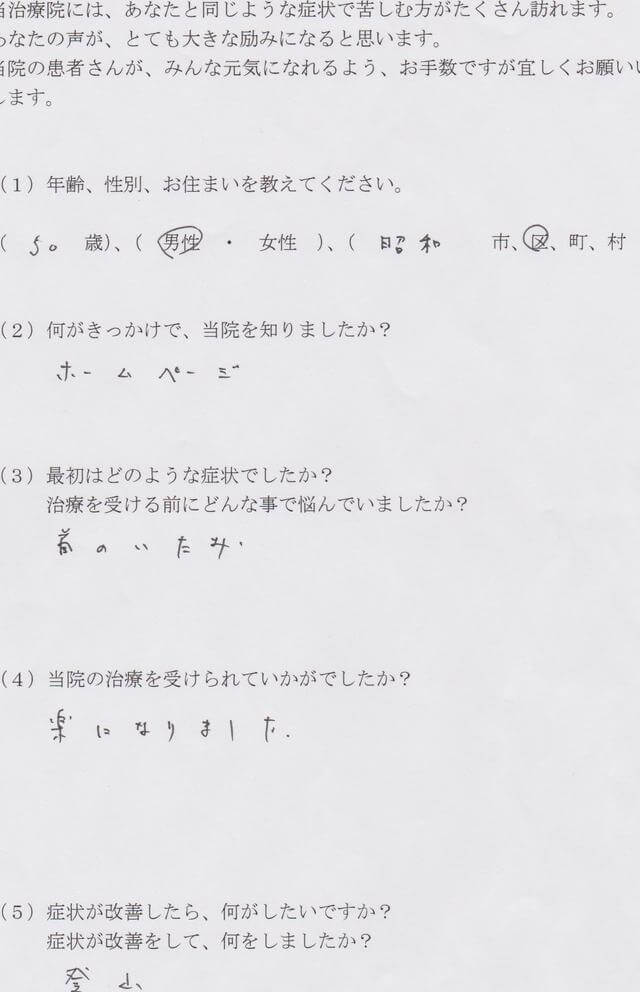 当治療院には、あなたと同じような症状で苦しむ方がたくさん訪れます。
あなたの声が、とても大きな励みになると思います。
当院の患者さんが、みんな元気になれるよう、お手数ですが宜しくお願いい
します。
(1)年齢、性別、お住まいを教えてください。
( 50 歳)、( 男性 ・ 女性 )、( 昭和 市、区、町、村
(2)何がきっかけで、当院を知りましたか?
ホームページ
(3)最初はどのような症状でしたか?
治療を受ける前にどんな事で悩んでいましたか?
首のいたみ
(4)当院の治療を受けられていかがでしたか?
楽になりました.
(5)症状が改善したら、何がしたいですか?
症状が改善をして、何をしましたか?
登山